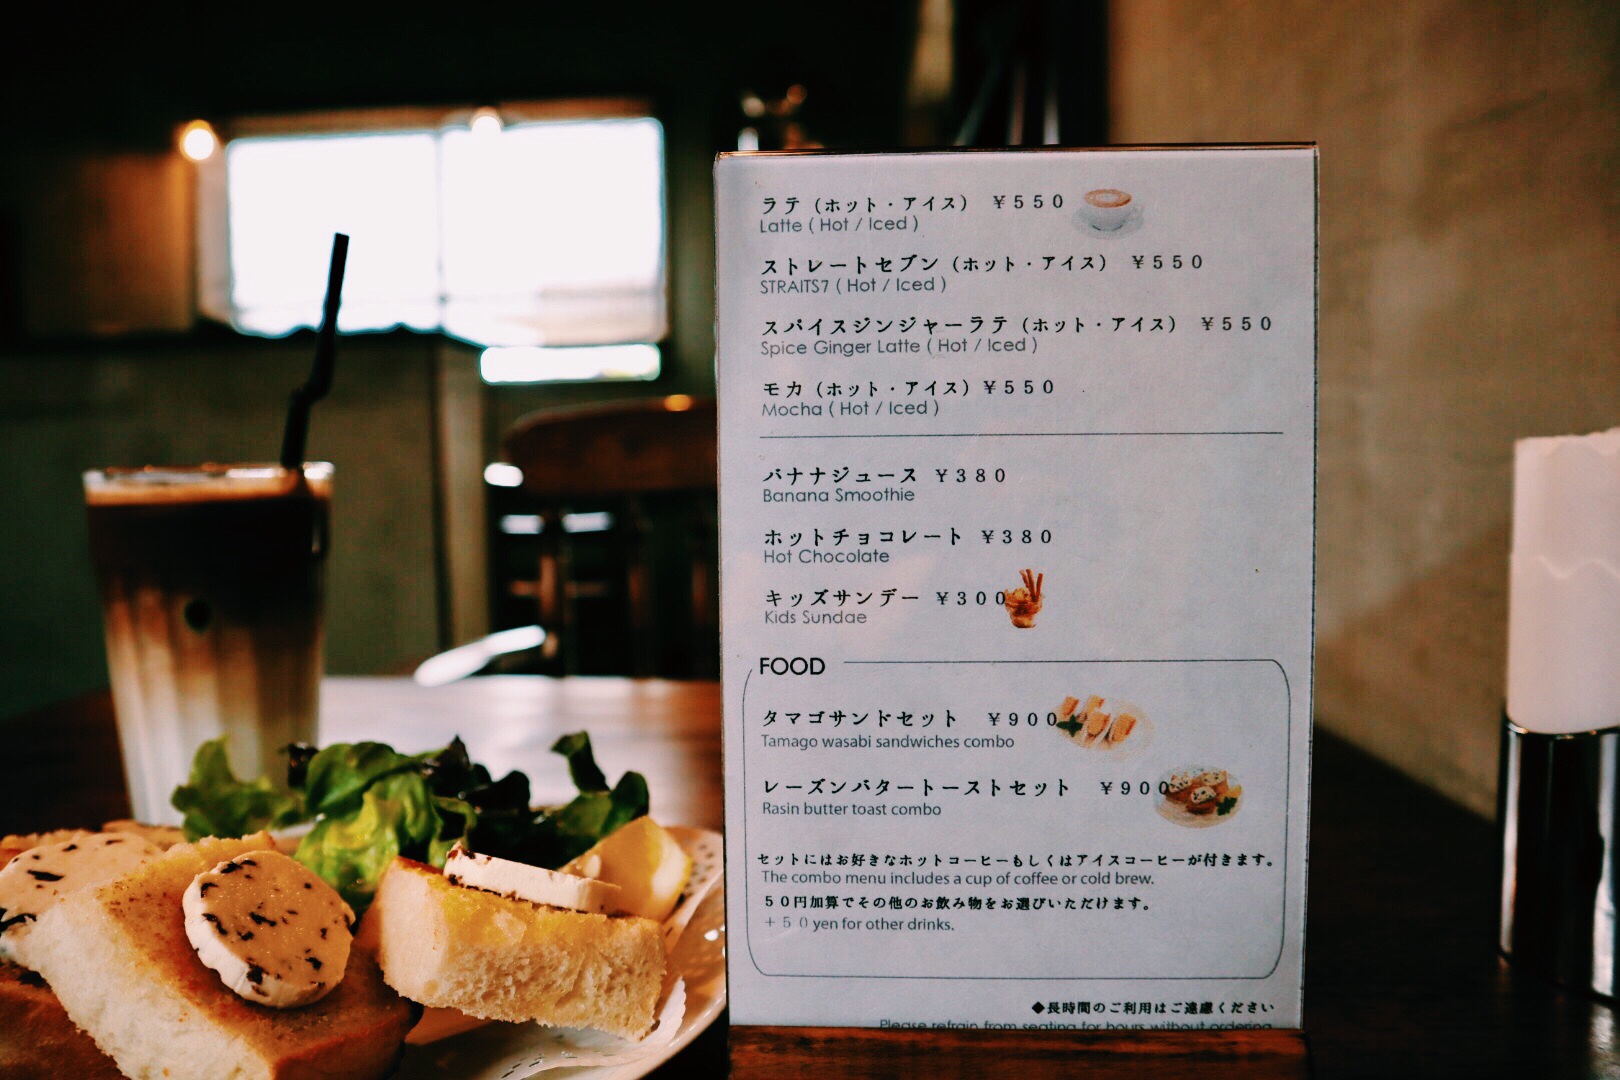 ラテ（ホット・アイス） ￥５５０
Latte ( Hot / Iced )
ストレートセブン（ホット・アイス） ￥５５０
STRAITS7 ( Hot / Iced )
スパイスジンジャーラテ（ホット・アイス） ￥５５０
Spice Ginger Latte ( Hot / Iced )
モカ（ホット・アイス）￥５５０
Mocha ( Hot / Iced )
バナナジュース ￥３８０
Banana Smoothie
ホットチョコレート ￥３８０
Hot Chocolate
キッズサンデー ￥３００
Kids Sundae
FOOD
タマゴサンドセット ￥９００
Tamago wasabi sandwiches combo
レーズンバタートーストセット ￥９００
Rasin butter toast combo
セットにはお好きなホットコーヒーもしくはアイスコーヒーが付きます。
The combo menu includes a cup of coffee or cold brew.
５０円加算でその他のお飲み物をお選びいただけます。
＋５０ yen for other drinks.
◆長時間のご利用はご遠慮ください
Please refrain from seating for hours without ordering